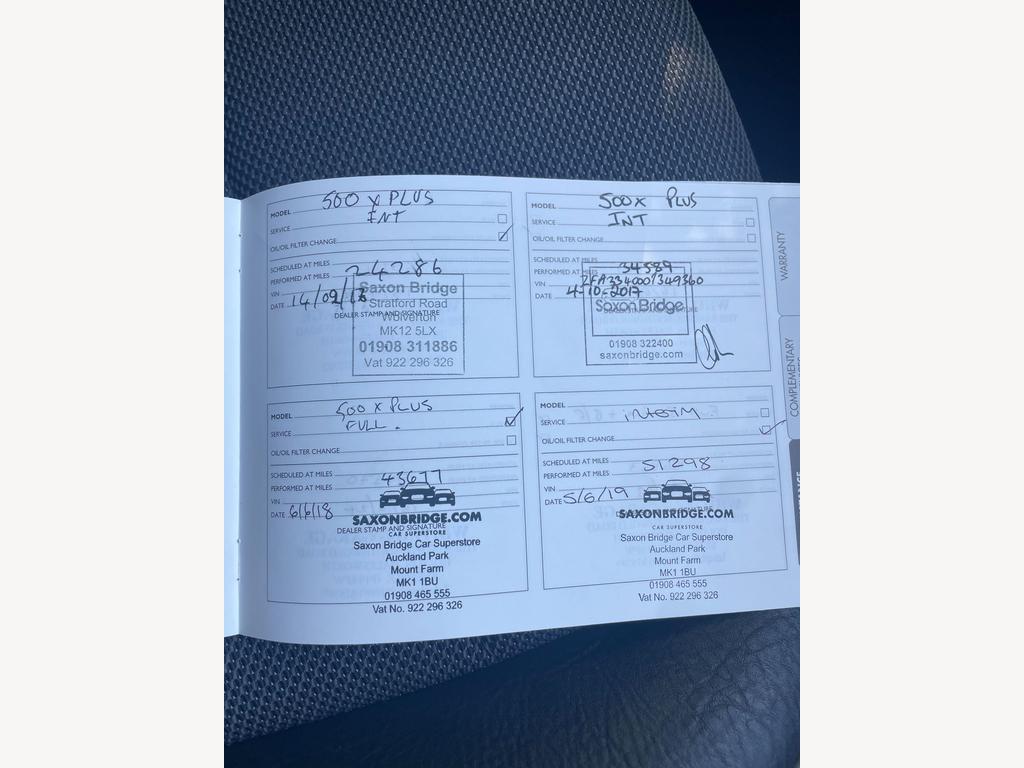 MODEL 500 X PLUS
SERVICE INT
OIL/OIL FILTER CHANGE
SCHEDULED AT MILES
PERFORMED AT MILES 24286
VIN
DATE 14/09/
DEALER STAMP AND SIGNATURE
Saxon Bridge
Stratford Road
Wolverton
MK12 5LX
01908 311886
Vat 922 296 326
MODEL 500X PLUS
SERVICE INT
OIL/OIL FILTER CHANGE
SCHEDULED AT MILES
PERFORMED AT MILES 34589
VIN
DATE 4-10-2017
Saxon Bridge
01908 322400
saxonbridge.com
MODEL 500 X PLUS
SERVICE FULL.
OIL/OIL FILTER CHANGE
SCHEDULED AT MILES
PERFORMED AT MILES 43677
VIN
DATE 6/6/18
SAXONBRIDGE.COM
DEALER STAMP AND SIGNATURE
CAR SUPERSTORE
Saxon Bridge Car Superstore
Auckland Park
Mount Farm
MK1 1BU
01908 465 555
Vat No. 922 296 326
MODEL
SERVICE interim
OIL/OIL FILTER CHANGE
SCHEDULED AT MILES
PERFORMED AT MILES 51298
VIN
DATE 5/6/19
SAXONBRIDGE.COM
CAR SUPERSTORE
Saxon Bridge Car Superstore
Auckland Park
Mount Farm
MK1 1BU
01908 465 555
Vat No. 922 296 326
WARRANTY
COMPLEMENTARY